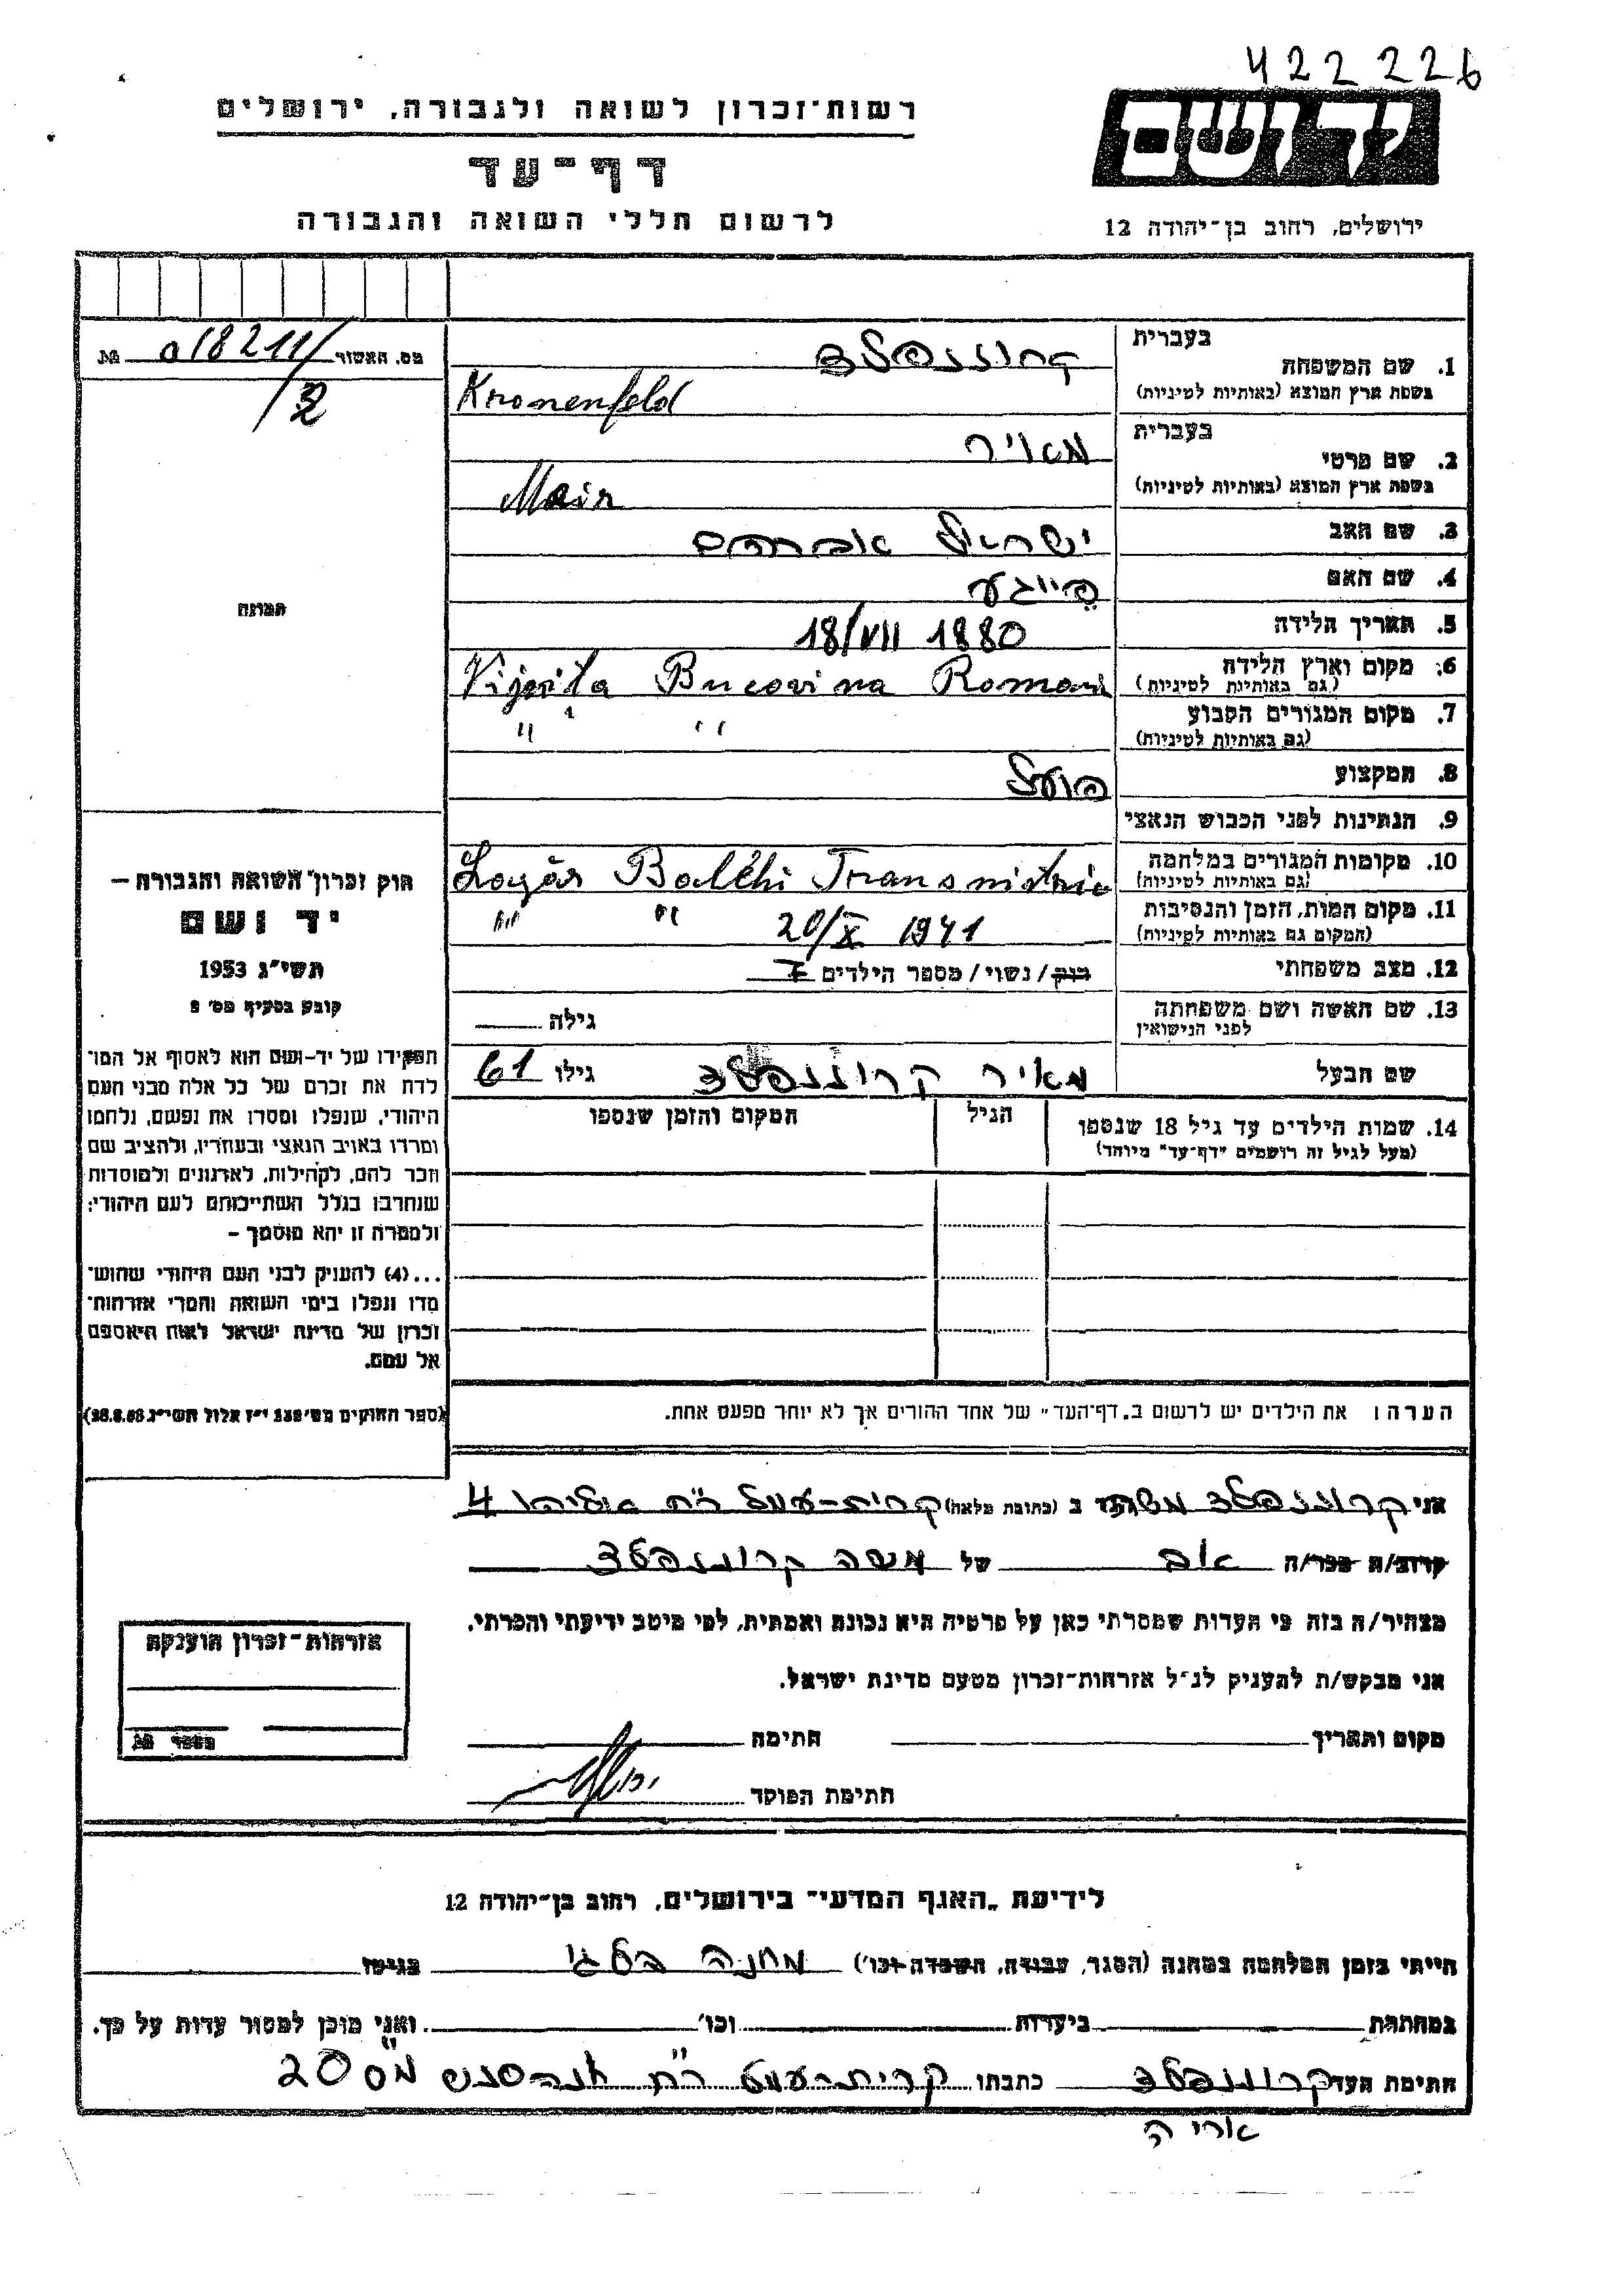 422226
רשות־זכרון לשואה ולגבורה, ירושלים
יד ושם
דף־עד
לרשום חללי השואה והגבורה
ירושלים, רחוב בן־יהודה 12
בעברית
1. שם המשפחה
קרוננפלד
בשפת ארץ המוצא (באותיות לטיניות)
Kronenfeld
מס. האשור 018211/2 №
בעברית
2. שם פרטי
מאיר
בשפת ארץ המוצא (באותיות לטיניות)
Mair
3. שם האב ישראל אברהם
4. שם האם פייגע
תמונה
5. תאריך הלידה 18/VII 1880
6. מקום וארץ הלידה Vijnita Bucovina Romani
(גם באותיות לטיניות)
7. מקום המגורים הקבוע " "
(גם באותיות לטיניות)
8. המקצוע פועל
9. הנתינות לפני הכבוש הנאצי
10. מקומות המגורים במלחמה Logăr Transnistria
(גם באותיות לטיניות)
11. מקום המות, הזמן והנסיבות " " 20/X 1941
(המקום גם באותיות לטיניות)
12. מצב משפחתי רוק/נשוי/מספר הילדים 7
13. שם האשה ושם משפחתה
לפני הנישואין
גילה
שם הבעל מאיר קרוננפלד גילו 61
14. שמות הילדים עד גיל 18 שנספו
(מעל לגיל זה רושמים "דף־עד" מיוחד)
הגיל
המקום והזמן שנספו
חוק זכרון השואה והגבורה –
יד ושם
תשי"ג 1953
קובע בסעיף מס' 2
תפקידו של יד-ושם הוא לאסוף אל המו־
לדת את זכרם של כל אלה מבני העם
היהודי, שנפלו ומסרו את נפשם, נלחמו
ומרדו באויב הנאצי ובעוזריו, ולהציב שם
וזכר להם, לקהילות, לארגונים ולמוסדות
שנחרבו בגלל השתייכותם לעם היהודי;
ולמטרה זו יהא מוסמך –
...(4) להעניק לבני העם היהודי שהוש־
מדו ונפלו בימי השואה והמרי אזרחות־
זכרון של מדינת ישראל לאות היאספם
אל עמם.
(ספר החוקים מס' 132 י"ז אלול תשי"ג 28.8.53)
הערה: את הילדים יש לרשום ב„דף־העד" של אחד ההורים אך לא יותר מפעם אחת.
אני קרוננפלד ב (כתובת מלאה) קרית-עטא רח אליהו 4
קרוב/ה מכר/ה אב של משה קרוננפלד
מצהיר/ה בזה כי העדות שמסרתי כאן על פרטיה היא נכונה ואמתית, לפי מיטב ידיעתי והכרתי.
אני מבקש/ת להעניק לנ"ל אזרחות־זכרון מטעם מדינת ישראל.
מקום ותאריך חתימה
חתימת הפוקד
אזרחות־זכרון הוענקה
מספר №
לידיעת „האגף המדעי" בירושלים, רחוב בן־יהודה 12
הייתי בזמן המלחמה במחנה (הסגר, עבודה, השמדה וכו') מחנה בלגי בגיטו
במחתרת ביערות וכו' ואני מוכן למסור עדות על כך.
חתימת העד קרוננפלד כתבתו קרית-עטא רח' חנה סנש מס 20
אריה